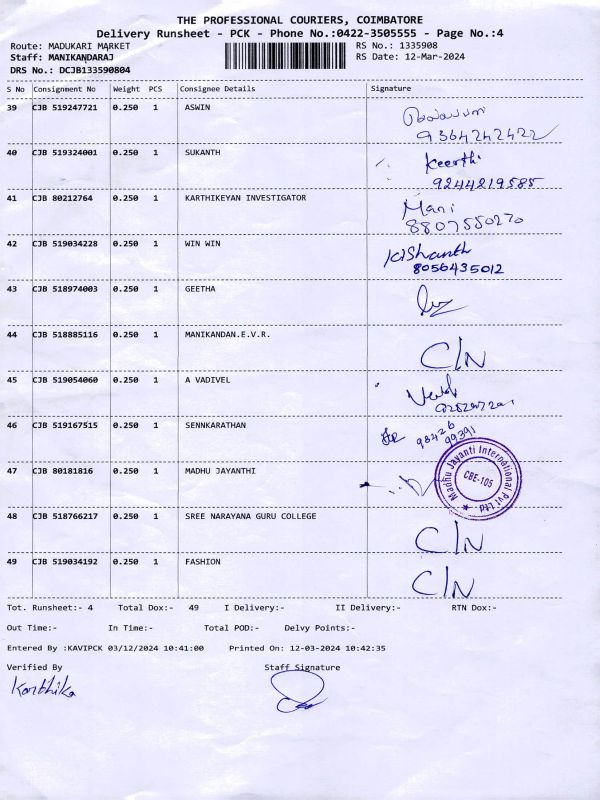 THE PROFESSIONAL COURIERS, COIMBATORE
Delivery Runsheet - PCK - Phone No.:0422-3505555 - Page No.:4
Route: MADUKARI MARKET RS No.: 1335908
Staff: MANIKANDARAJ RS Date: 12-Mar-2024
DRS No.: DCJB133590804
S No Consignment No Weight PCS Consignee Details Signature
39 CJB 519247721 0.250 1 ASWIN
9364242422
40 CJB 519324001 0.250 1 SUKANTH Keerthi
9244219585
41 CJB 80212764 0.250 1 KARTHIKEYAN INVESTIGATOR Mani
8807550270
42 CJB 519034228 0.250 1 WIN WIN Kishanth
8056435012
43 CJB 518974003 0.250 1 GEETHA
44 CJB 518885116 0.250 1 MANIKANDAN.E.V.R. C/N
45 CJB 519054060 0.250 1 A VADIVEL
46 CJB 519167515 0.250 1 SENNKARATHAN 98426
99391
47 CJB 80181816 0.250 1 MADHU JAYANTHI Madhu Jayanti International Pvt Ltd
CBE-105
48 CJB 518766217 0.250 1 SREE NARAYANA GURU COLLEGE C/N
49 CJB 519034192 0.250 1 FASHION C/N
Tot. Runsheet:- 4 Total Dox:- 49 I Delivery:- II Delivery:- RTN Dox:-
Out Time:- In Time:- Total POD:- Delvy Points:-
Entered By :KAVIPCK 03/12/2024 10:41:00 Printed On: 12-03-2024 10:42:35
Verified By Staff Signature
Karthika